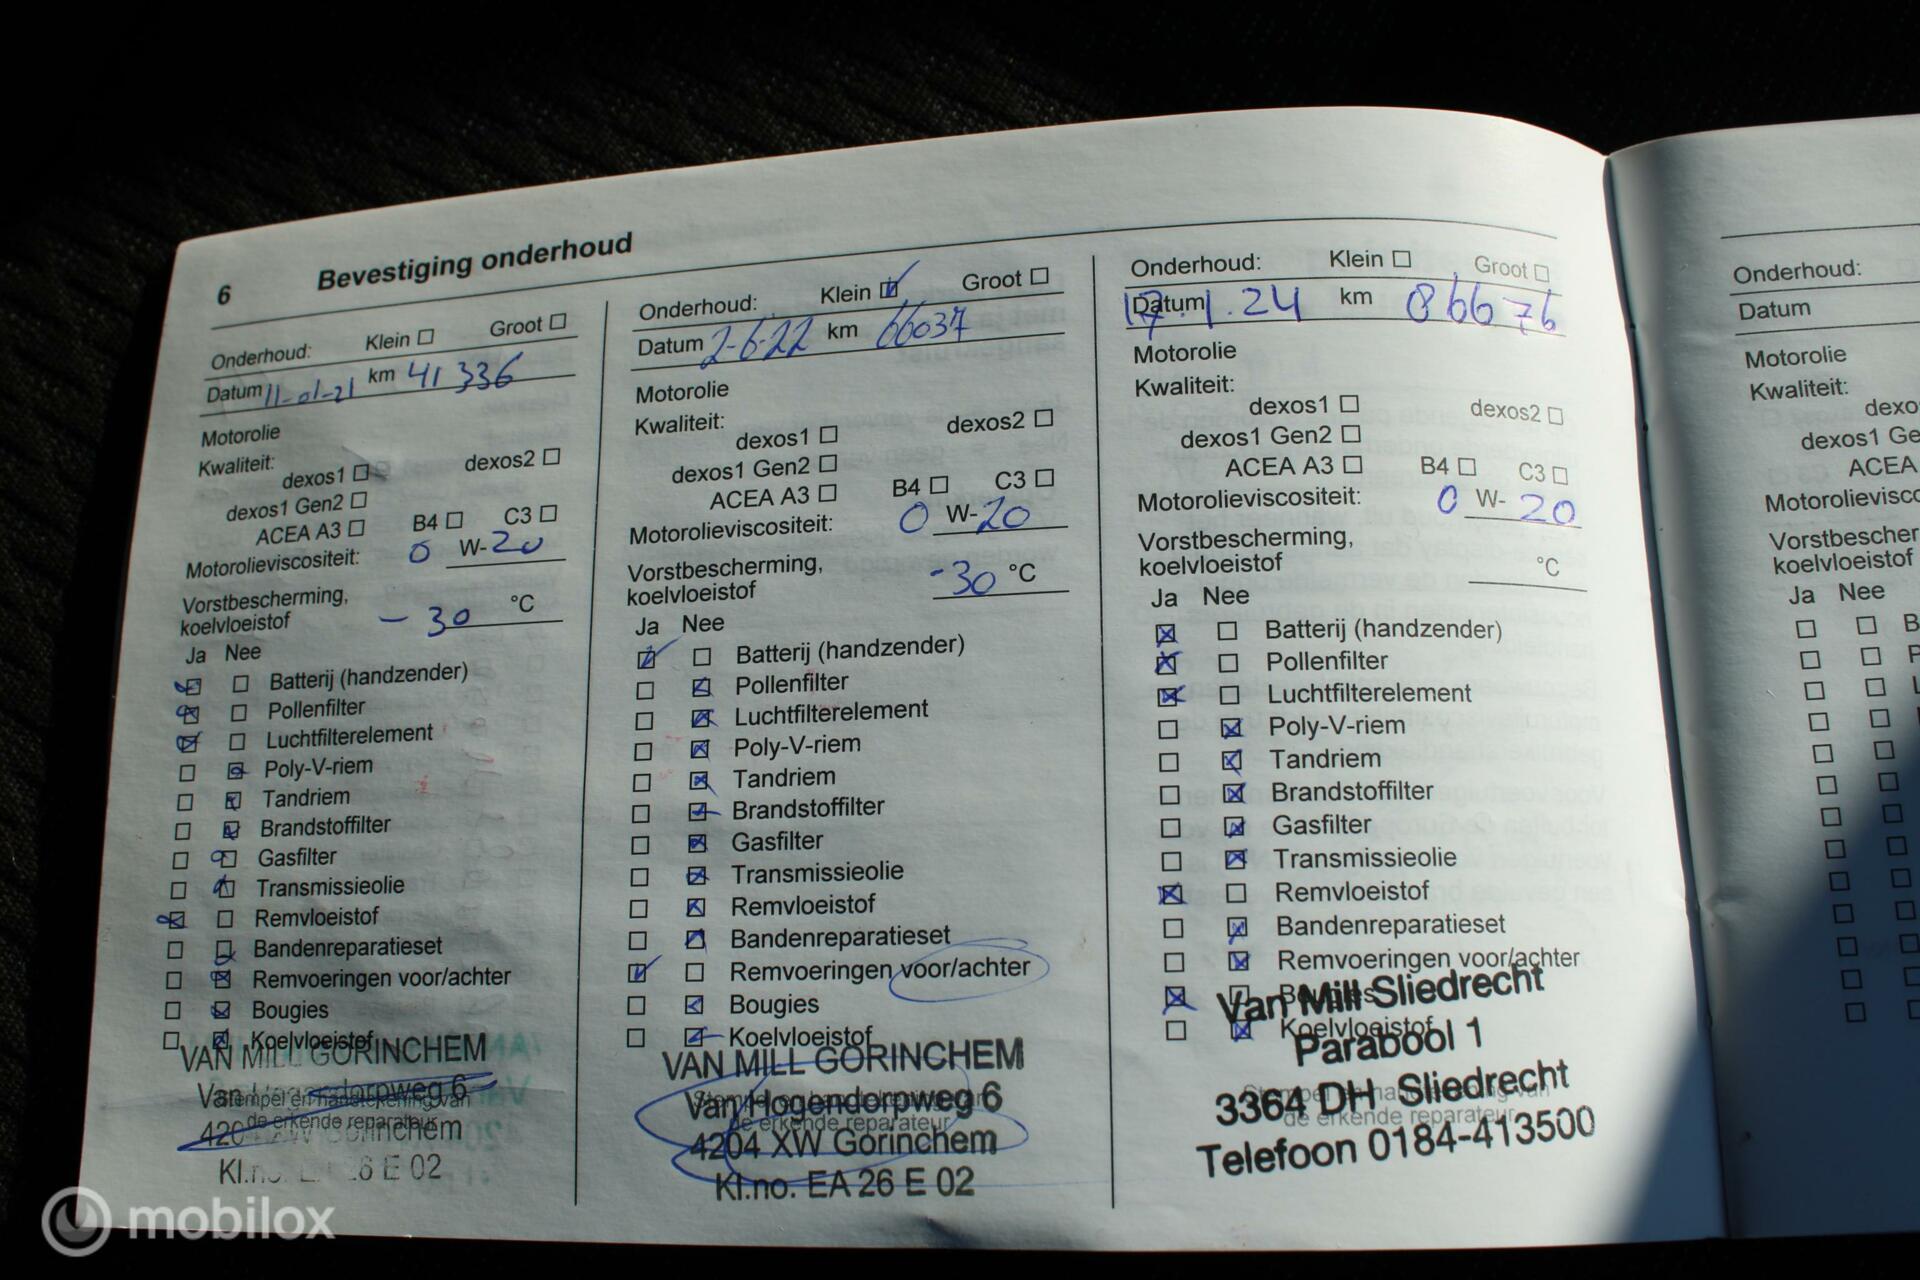 6 Bevestiging onderhoud
Onderhoud: Klein Groot
Datum 11-01-21 km 41 336
Motorolie
Kwaliteit:
dexos1 dexos2
dexos1 Gen2
ACEA A3 B4 C3
Motorolieviscositeit: 0 W-20
Vorstbescherming,
koelvloeistof -30 °C
Ja Nee
Batterij (handzender)
Pollenfilter
Luchtfilterelement
Poly-V-riem
Tandriem
Brandstoffilter
Gasfilter
Transmissieolie
Remvloeistof
Bandenreparatieset
Remvoeringen voor/achter
Bougies
Koelvloeistof
VAN MILL GORINCHEM
Van Hogendorpweg 6
Stempel en handtekening van
de erkende reparateur
4204 XW Gorinchem
Kl.no. EA 26 E 02
Onderhoud: Klein Groot
Datum 2-6-22 km 66037
Motorolie
Kwaliteit:
dexos1 dexos2
dexos1 Gen2
ACEA A3 B4 C3
Motorolieviscositeit: 0 W-20
Vorstbescherming,
koelvloeistof -30 °C
Ja Nee
Batterij (handzender)
Pollenfilter
Luchtfilterelement
Poly-V-riem
Tandriem
Brandstoffilter
Gasfilter
Transmissieolie
Remvloeistof
Bandenreparatieset
Remvoeringen voor/achter
Bougies
Koelvloeistof
VAN MILL GORINCHEM
Van Hogendorpweg 6
Stempel en handtekening van
de erkende reparateur
4204 XW Gorinchem
Kl.no. EA 26 E 02
Onderhoud: Klein Groot
Datum 17.1.24 km 086676
Motorolie
Kwaliteit:
dexos1 dexos2
dexos1 Gen2
ACEA A3 B4 C3
Motorolieviscositeit: 0 W-20
Vorstbescherming,
koelvloeistof °C
Ja Nee
Batterij (handzender)
Pollenfilter
Luchtfilterelement
Poly-V-riem
Tandriem
Brandstoffilter
Gasfilter
Transmissieolie
Remvloeistof
Bandenreparatieset
Remvoeringen voor/achter
Bougies
Koelvloeistof
Van Mill Sliedrecht
Parabool 1
3364 DH Sliedrecht
Stempel en handtekening van
de erkende reparateur
Telefoon 0184-413500
Onderhoud:
Datum
Motorolie
Kwaliteit:
dexo
dexos1 Ge
ACEA
Motorolievisco
Vorstbescher
koelvloeistof
Ja Nee
mobilox